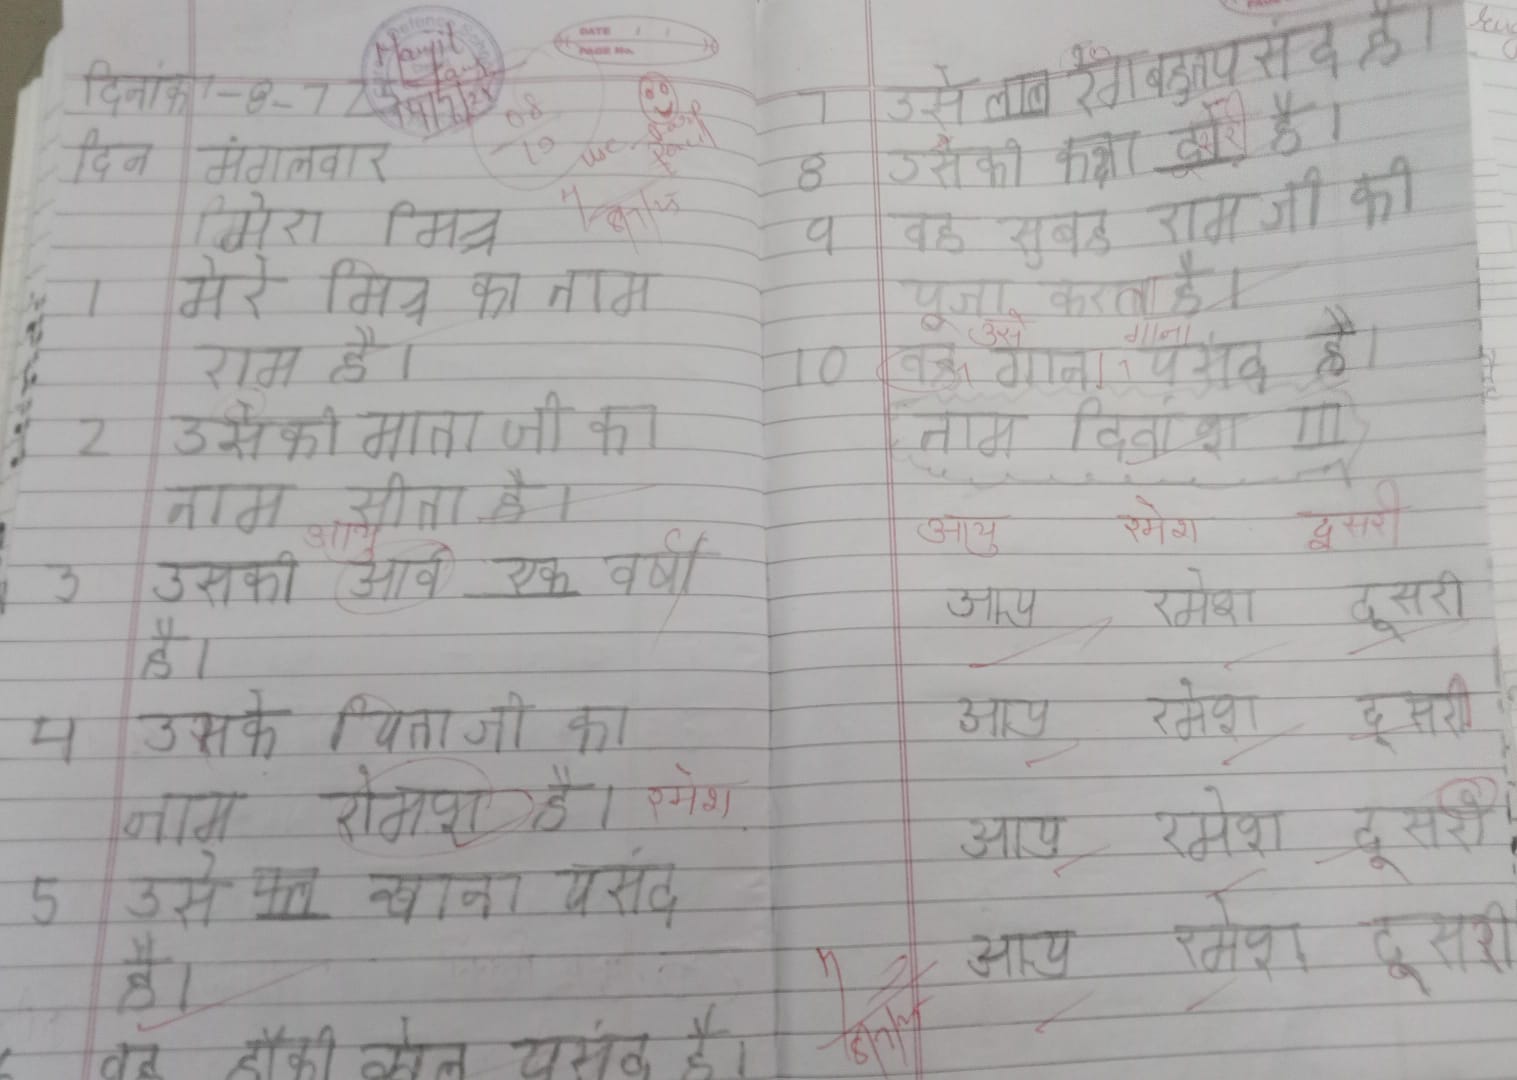 दिनांक 1-8-7
08
10
दिन मंगलवार
मिेरा मित्र
1 मेरे मित्र का नाम
राम है।
2 उसकी माता जी का
नाम सीता है।
आयु
3 उसकी आवे एक वर्षा
है।
4 उसके पिता जी का
नाम रोमेश है। रमेश
5 उसे फल खाना पसंद
है।
वह हॉकी खेल पसंद है।
DATE
PAGE No.
7 उसे लाल रंग बहुत पसंद है।
8 उसकी कक्षा दूसरी है।
9 वह सुबह राम जी की
पूजा करता है।
उसे गाना
10 वह गाना पसंद है।
नाम दिवांश
आयु रमेश दूसरी
आयु रमेश दूसरी
आयु रमेश दूसरी
आयु रमेश दूसरी
आयु रमेश दूसरी